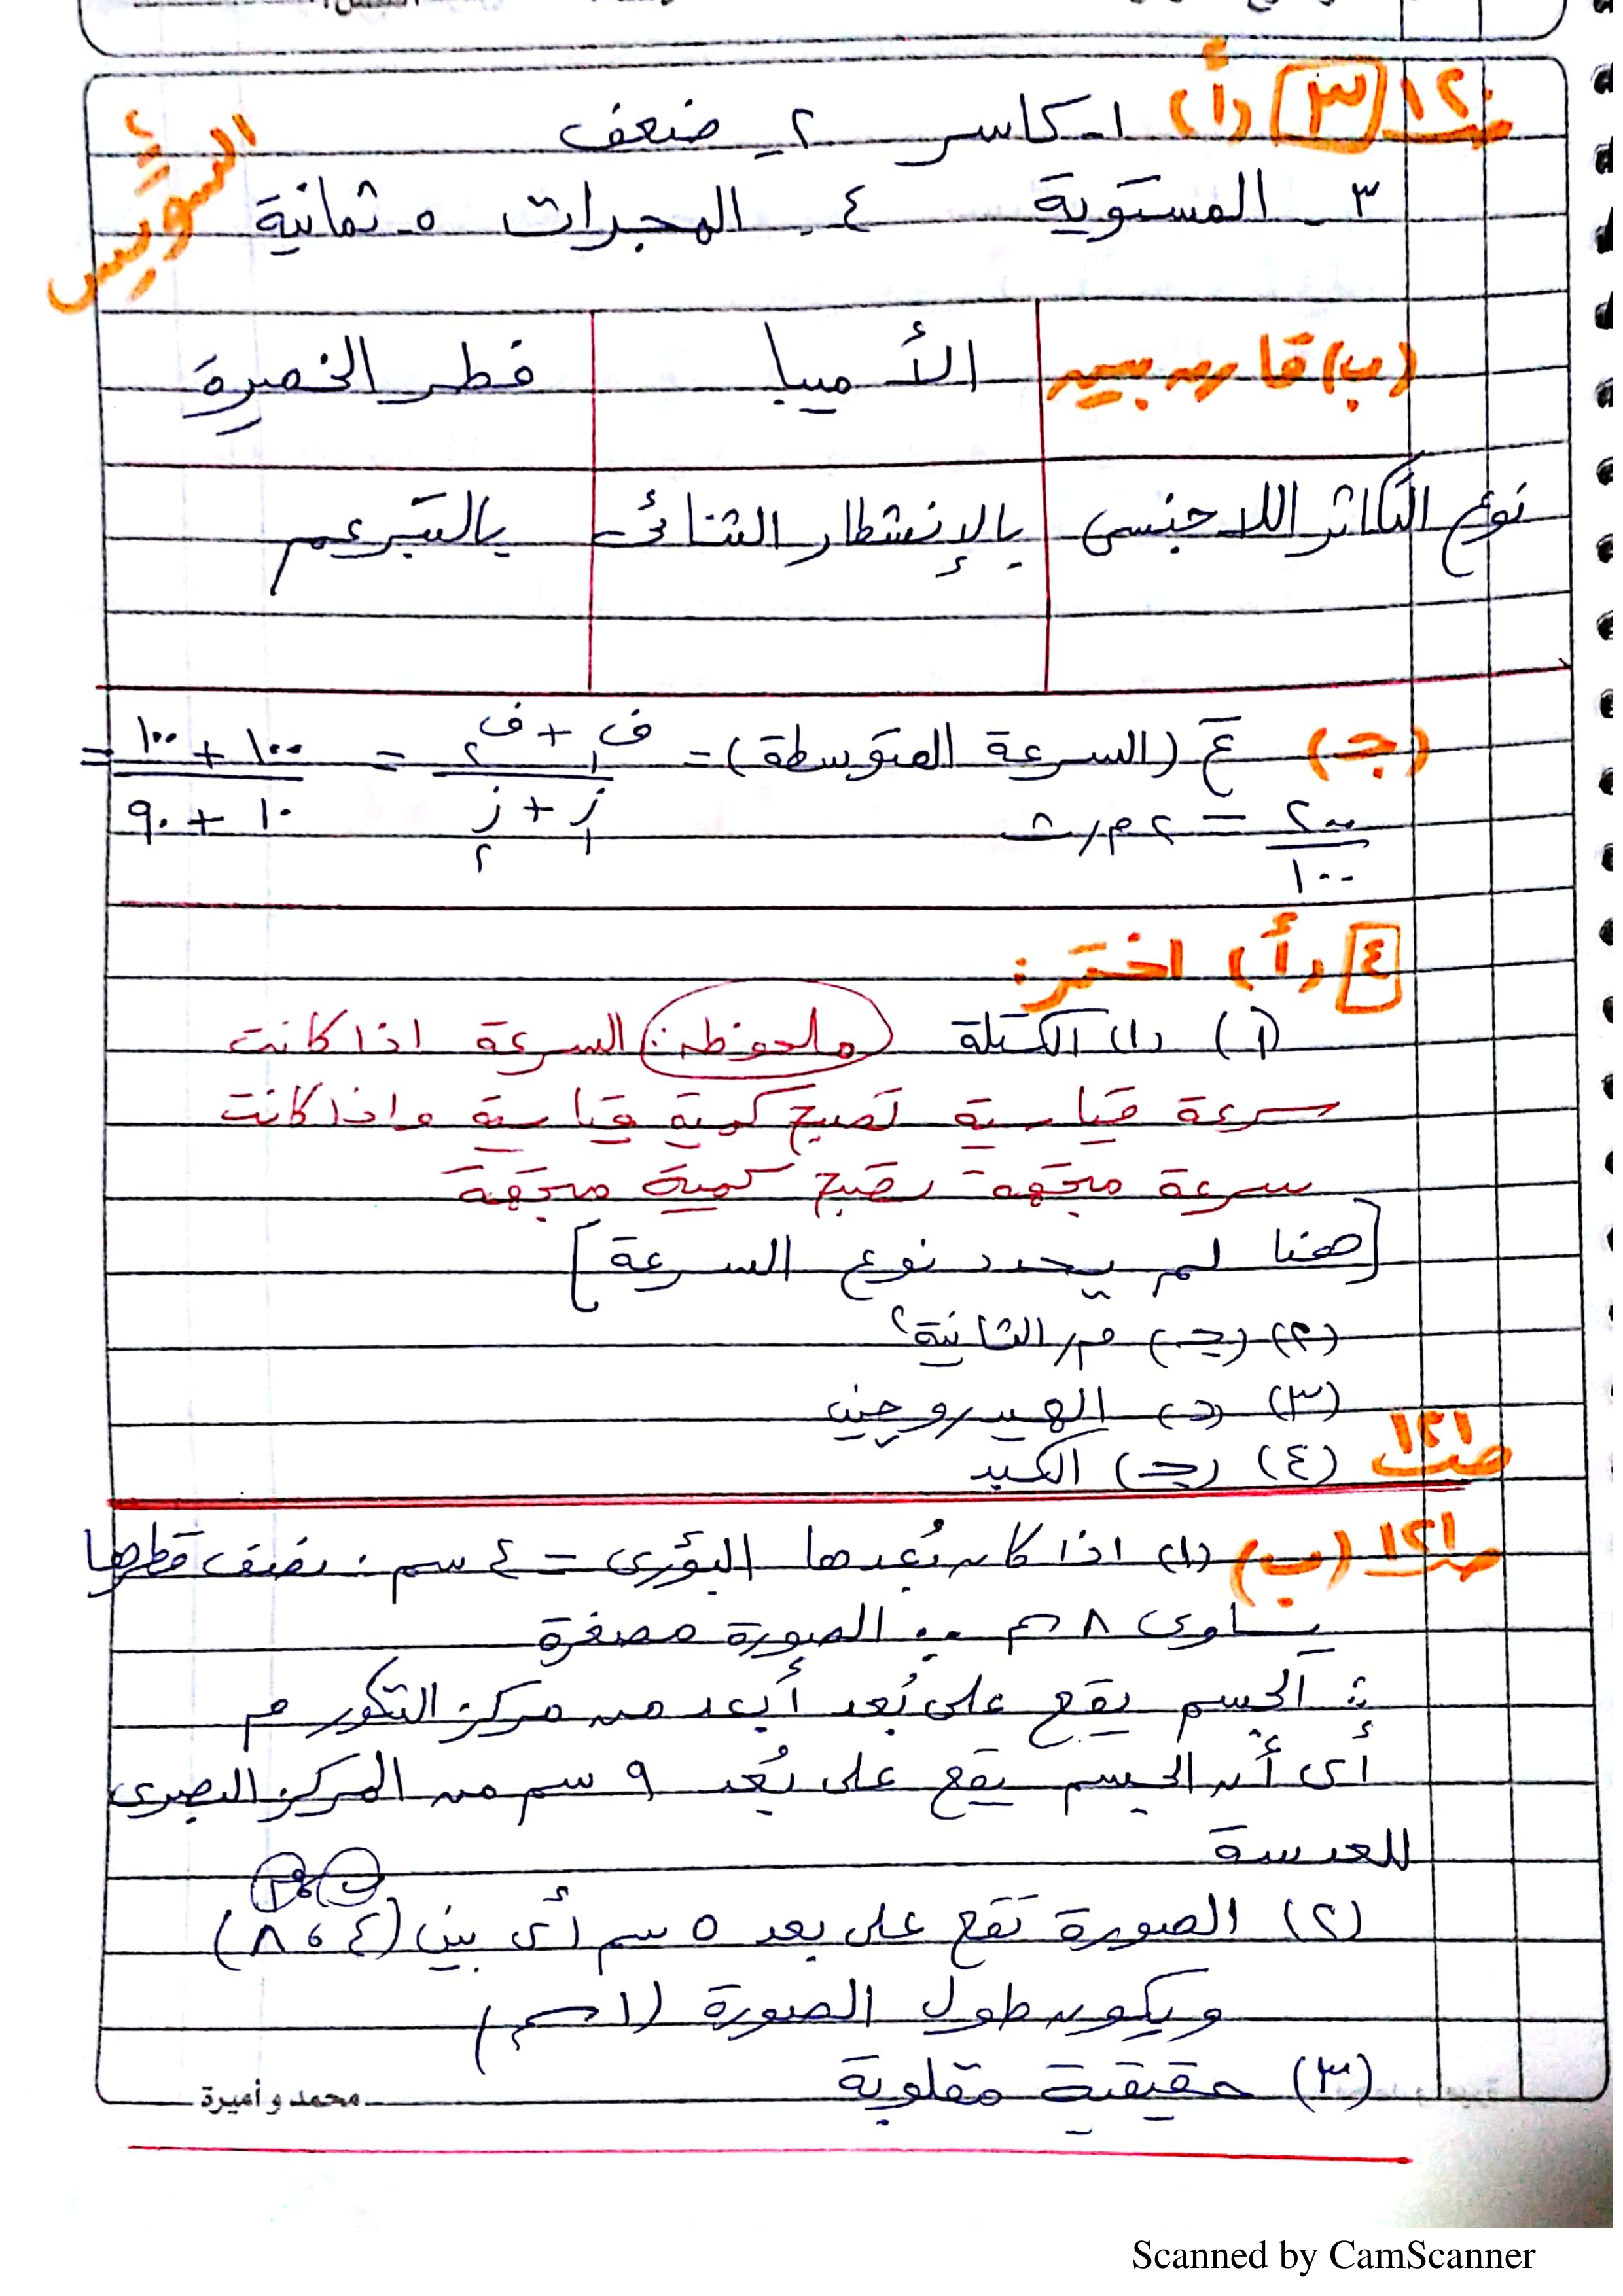 ص١٢٠ [٣] (أ) ١- كاسر ٢- ضعف
السويس
٣- المستوية ٤- المجرات ٥- ثمانية
(ب) قارن بين الأميبا فطر الخميرة
نوع التكاثر اللاجنسى بالإنشطار الثنائى بالتبرعم
(جـ) ع (السرعة المتوسطة) = ف١ + ف٢ / ز١ + ز٢ = ١٠٠ + ١٠٠ / ١٠ + ٩٠ =
٢٠٠ / ١٠٠ = ٢ م/ث
[٤] (أ) اختر:
(١) (أ) الكتلة (ملحوظه:) السرعة اذا كانت
سرعة قياسية تصبح كمية قياسية واذا كانت
سرعة متجهة تصبح كمية متجهة
[هنا لم يحدد نوع السرعة]
(٢) (جـ) م/الثانية٢
(٣) (د) الهيدروجين
ص١٢١ (٤) (جـ) الكبد
ص١٢١ (ب) (١) اذا كان بُعدها البؤرى = ٤ سم ∴ نصف قطرها
يساوى ٨ سم ∵ الصورة مصغرة
∴ الجسم يقع على بُعد أبعد من مركز التكور م
أى أن الجسم يقع على بُعد ٩ سم من المركز البصرى
للعدسة
(٢) الصورة تقع على بعد ٥ سم أى بين (٤ ، ٨)
ويكون طول الصورة (١ سم)
(٣) حقيقية مقلوبة
محمد و أميرة
Scanned by CamScanner